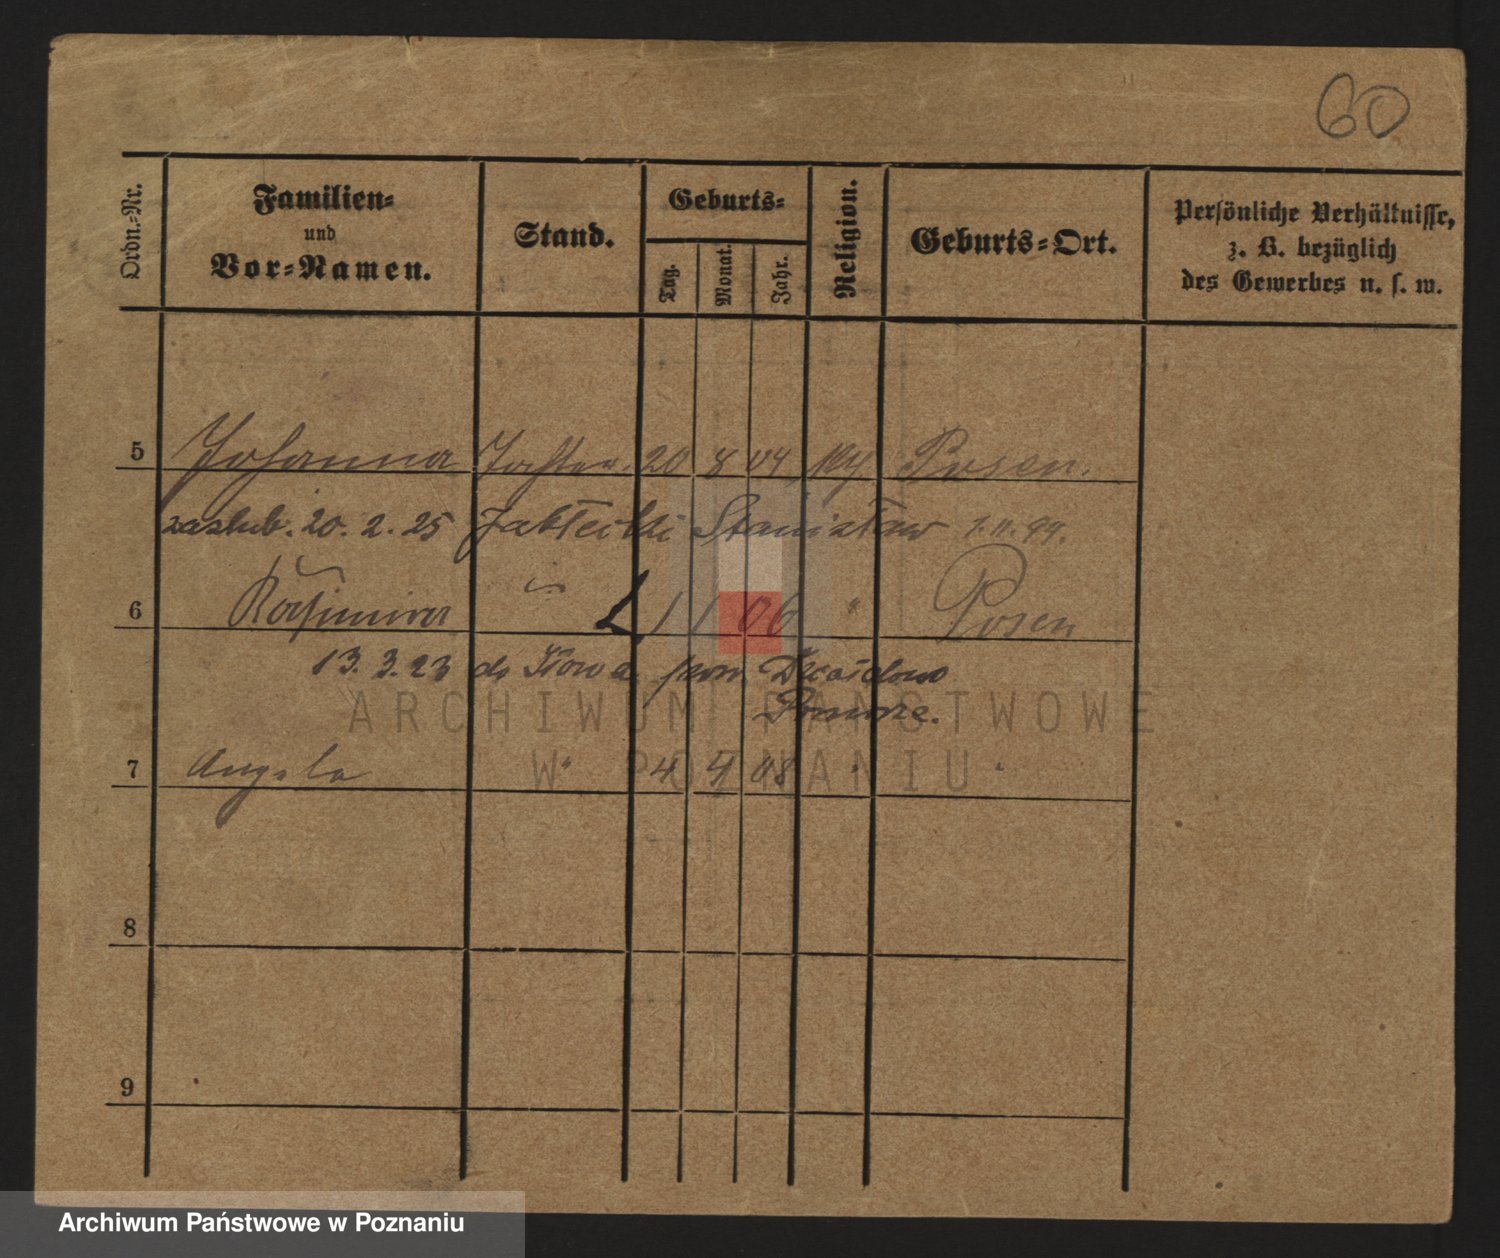 60
Ordn.-Nr.
Familien-
und
Vor-Namen.
Stand.
Geburts-
Tag.
Monat.
Jahr.
Religion.
Geburts-Ort.
Persönliche Verhältnisse,
z. B. bezüglich
des Gewerbes u. s. w.
5 Johanna Tochter. 20 8 04 Posen.
zaślub. 20.2.25 Stanisław 1.11.99.
6 Kasimira " 1 1 06 " Posen
13.3.23 do pow. Działdowo
ARCHIWUM PAŃSTWOWE
W POZNANIU
7 Angela " 4 4 08 " "
8
9
Archiwum Państwowe w Poznaniu